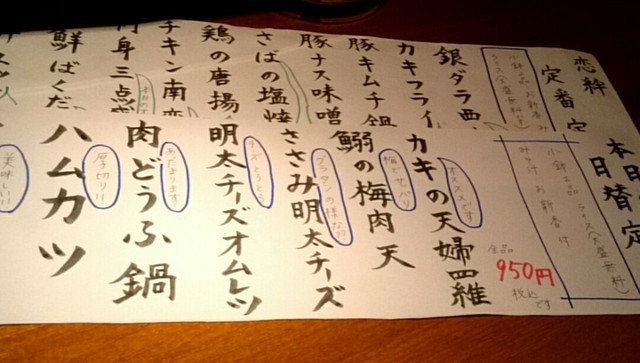 恋絆
定番定
銀ダラ西
カキフライ
豚キムチ鍋
豚ナス味噌
さばの塩焼
鶏の唐揚
チキン南蛮
刺身三点盛
海鮮ばくだ
本日の
日替定
小鉢2品 ライス(大盛無料)
みそ汁 お新香付
全品
950円
税込です
カキの天婦羅
オススメです
鰯の梅肉天
梅でサッパリ
ささみ明太チーズ
グラタンの様な??
明太チーズオムレツ
チーズとろとろ
肉どうふ鍋
あったまります
ハムカツ
厚切り!!
美味しい!!